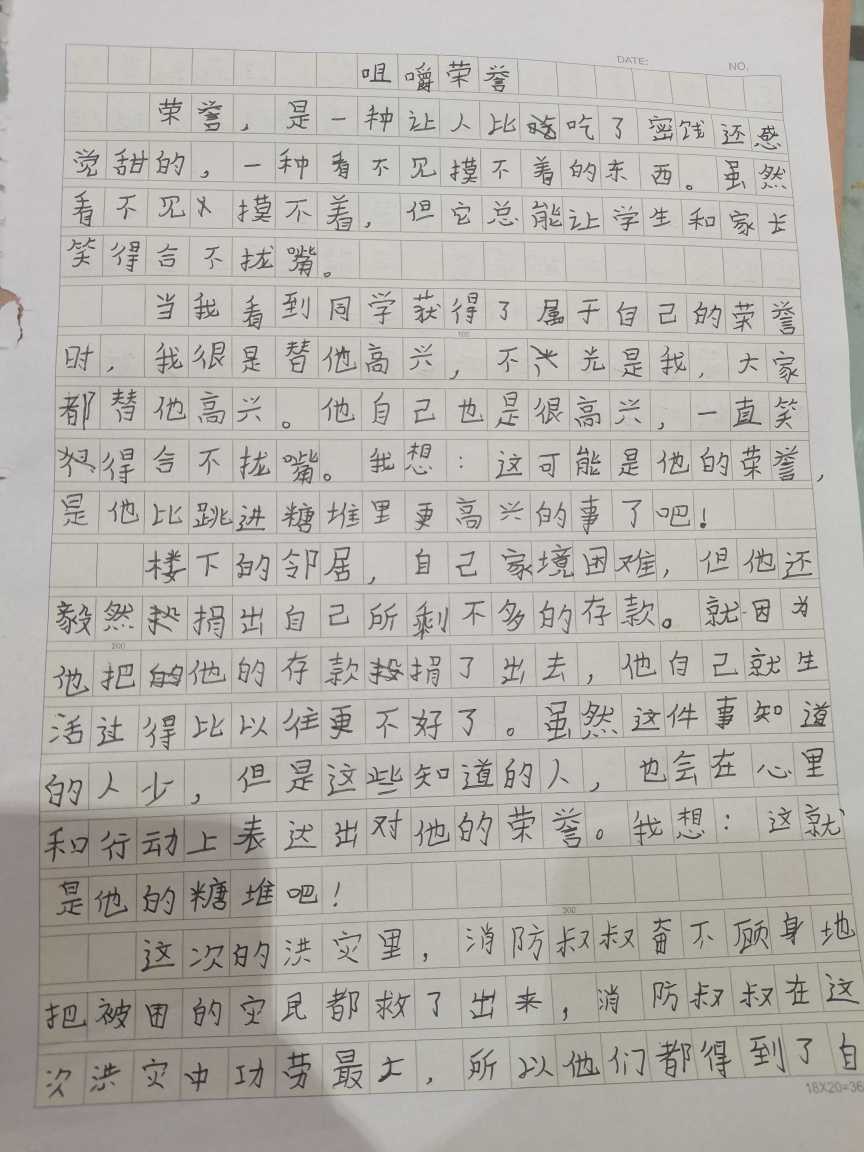 DATE: NO.
咀嚼荣誉
荣誉，是一种让人比吃了密饯还感
觉甜的，一种看不见摸不着的东西。虽然
看不见摸不着，但它总能让学生和家长
笑得合不拢嘴。
当我看到同学获得了属于自己的荣誉
100
时，我很是替他高兴，不光是我，大家
都替他高兴。他自己也是很高兴，一直笑
得合不拢嘴。我想：这可能是他的荣誉，
是他比跳进糖堆里更高兴的事了吧！
楼下的邻居，自己家境困难，但他还
毅然捐出自己所剩不多的存款。就因为
200
他把他的存款捐了出去，他自己就生
活过得比以往更不好了。虽然这件事知道
的人少，但是这些知道的人，也会在心里
和行动上表达出对他的荣誉。我想：这就
是他的糖堆吧！
300
这次的洪灾里，消防叔叔奋不顾身地
把被困的灾民都救了出来，消防叔叔在这
次洪灾中功劳最大，所以他们都得到了自
18X20=36